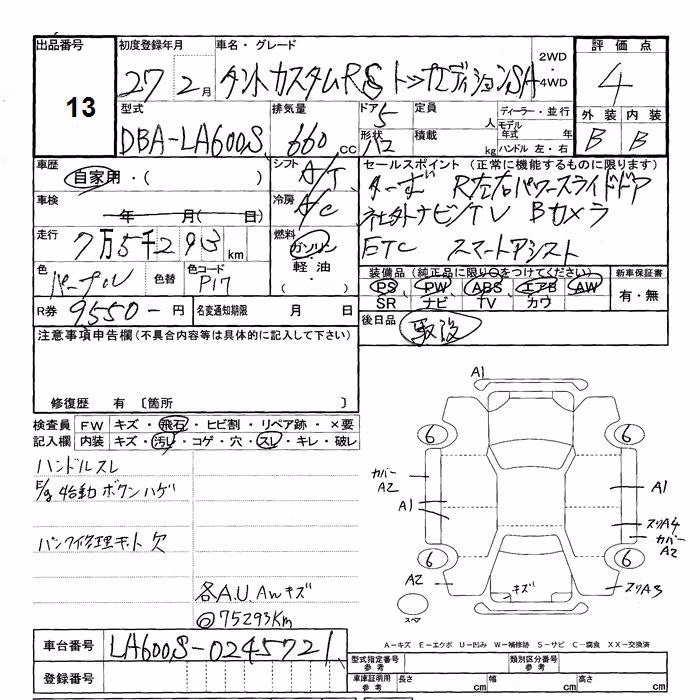 出品番号 初度登録年月 車名・グレード 2WD 評価点
13 27 2月 タントカスタムRS トップエディションSA ・4WD 4
型式 排気量 ドア 5 定員 人 ディーラー・並行 外装 内装
DBA-LA600S 660 cc 形状 ハコ 積載 kg モデル年式 年 B B
ハンドル 左・右
車歴 シフト セールスポイント（正常に機能するものに限ります）
自家用・（ ） A/T R左右パワースライドドア
車検 年 月（ 日） 冷房 A/C 社外ナビ/TV Bカメラ
走行 7万5千293km 燃料 ガソリン・軽油・（ ） ETC スマートアシスト
色 パープル 色替 色コード P17 装備品（純正品に限り○をつけてください） 新車保証書
PS、PW、ABS、エアB、AW 有・無
SR ナビ TV カワ
R券 9550-円 名変通知期限 月 日 後日品 取説
注意事項申告欄（不具合内容等は具体的に記入して下さい）
修復歴 有〔箇所
検査員 FW キズ・飛石・ヒビ割・リペア跡・×要
記入欄 内装 キズ・汚レ・コゲ・穴・スレ・キレ・破レ
ハンドルスレ
E/g始動ボタンハゲ
パンク修理キット欠
各A.U.Awキズ
◎75293Km
A1
6 6
カバー
A2
A1 A1
スリA4
カバー
A2
6 6
A2 キズ スリA3
スペア
A－キズ E－エクボ U－凹み W－補修跡 S－サビ C－腐食 XX－交換済
車台番号 LA600S-0245721
登録番号
型式指定番号 参考 類別区分番号 参考
車庫証明用 参考 長さ cm 幅 cm 高さ cm